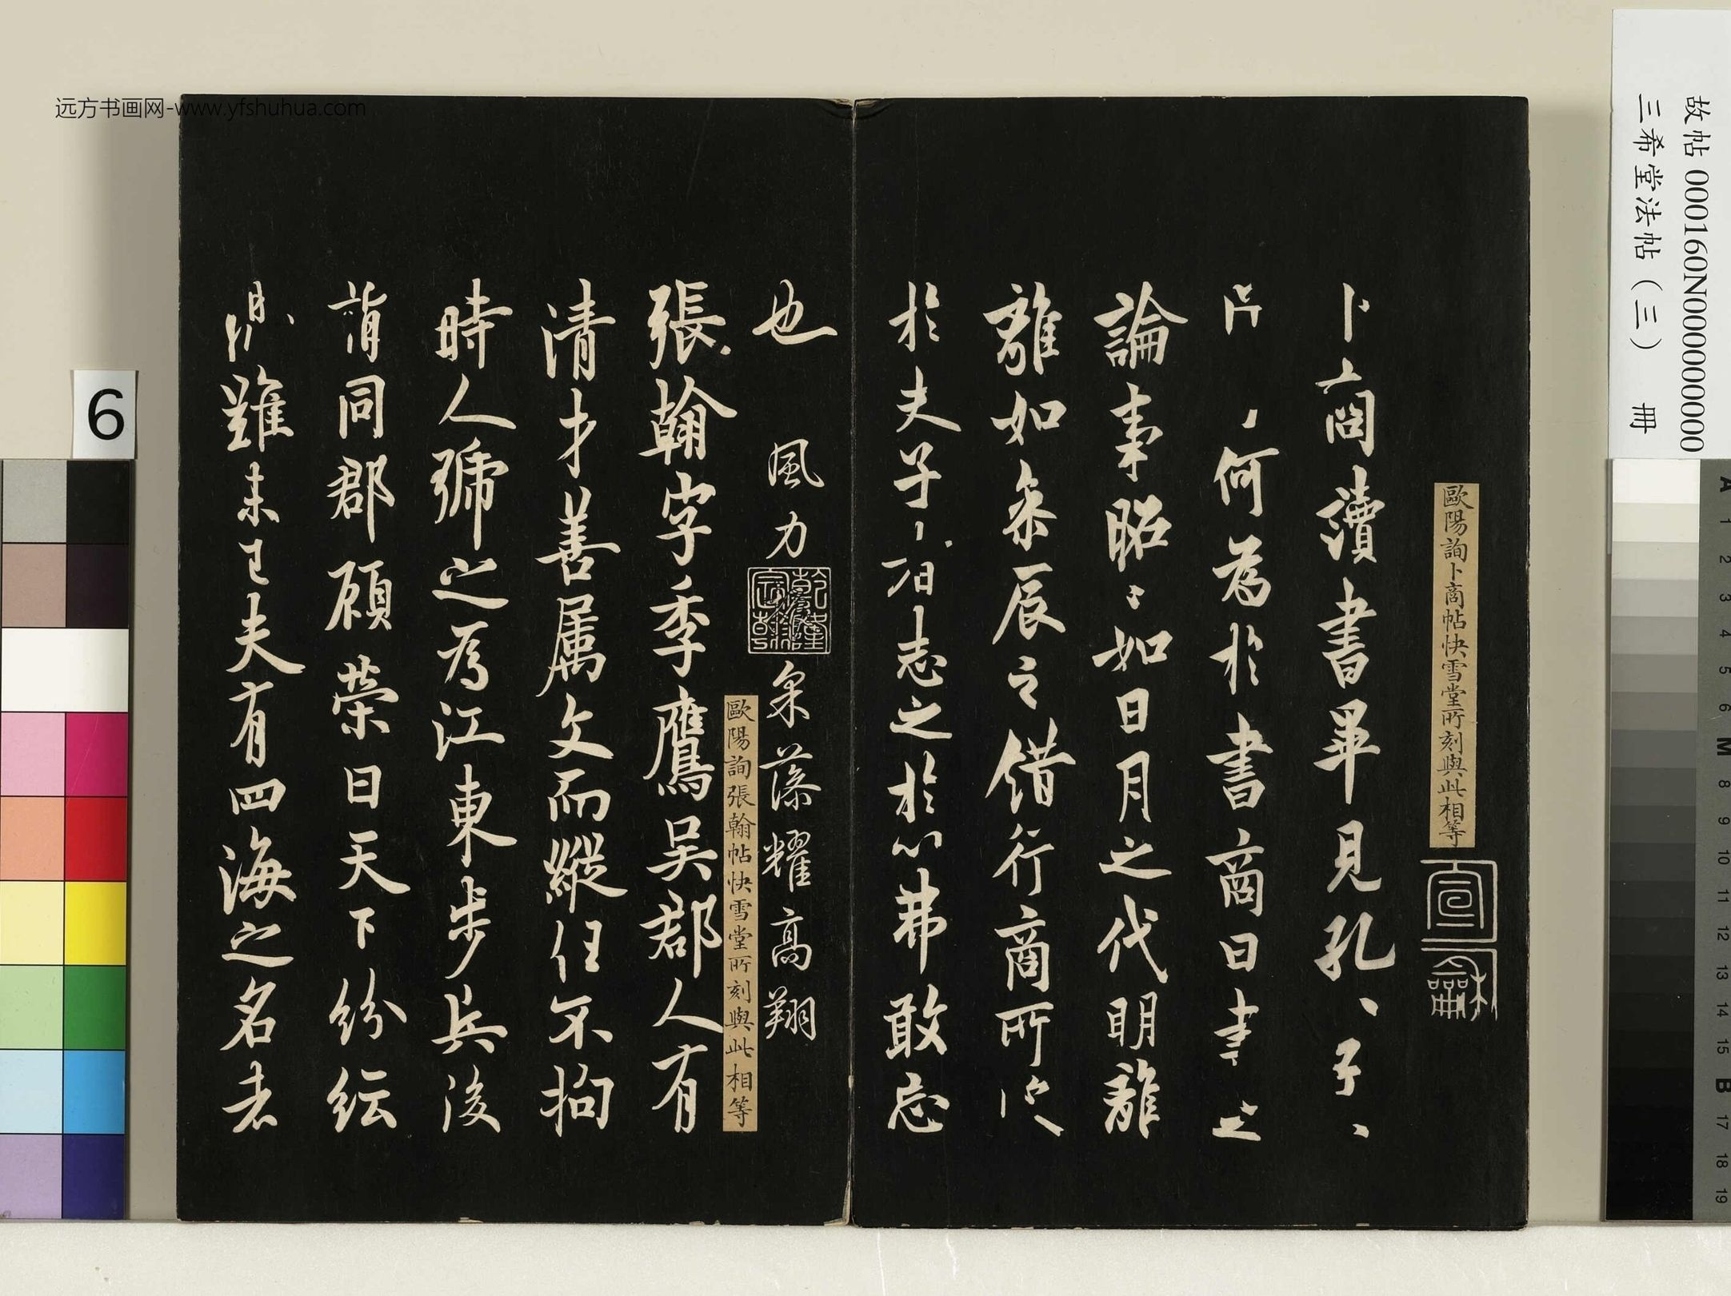 故帖 000160N000000000
三希堂法帖（三） 冊
歐陽詢卜商帖快雪堂所刻與此相等
宣龢
卜商讀書畢見孔、子、
、何為於書商曰書之
論事昭、如日月之代明離
離如參辰之錯行商所受
於夫子者志之於心弗敢忘
也 風力采藻耀高翔
歐陽詢張翰帖快雪堂所刻與此相等
張翰字季鷹吳郡人有
清才善屬文而縱任不拘
時人號之為江東步兵後
謂同郡顧榮曰天下紛紜
禍難未已夫有四海之名者
远方书画网-www.yfshuhua.com
6
A 1 2 3 4 5 6 M 8 9 10 11 12 13 14 15 B 17 18 19